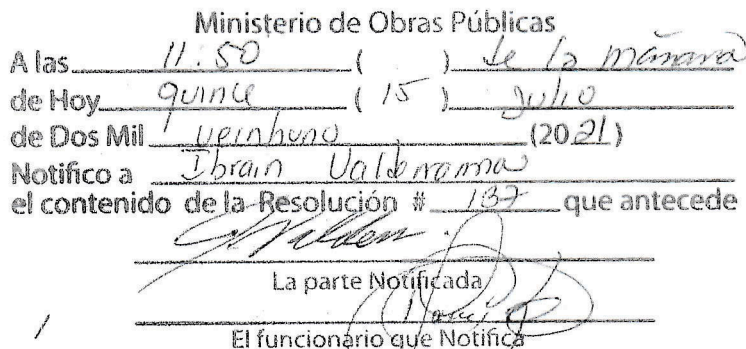 Ministerio de Obras Públicas
A las 11:50 ( ) de la mañana
de Hoy quince ( 15 ) Julio
de Dos Mil veinhuno (2021)
Notifico a Ibrain Valderrama
el contenido de la Resolución # 137 que antecede
La parte Notificada
El funcionario que Notifica